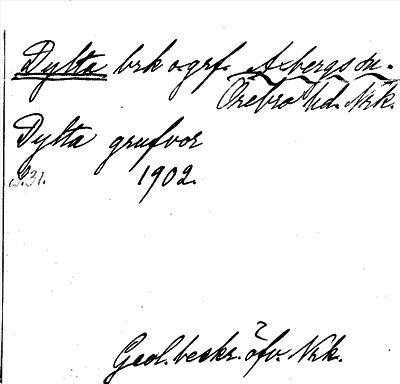 Dylta brk o. grf. Axbergs sn.
Örebro hd. Nrk.
Dylta grufvor
1902.
s. 31.
Geol. beskr. öfv. Nrk.